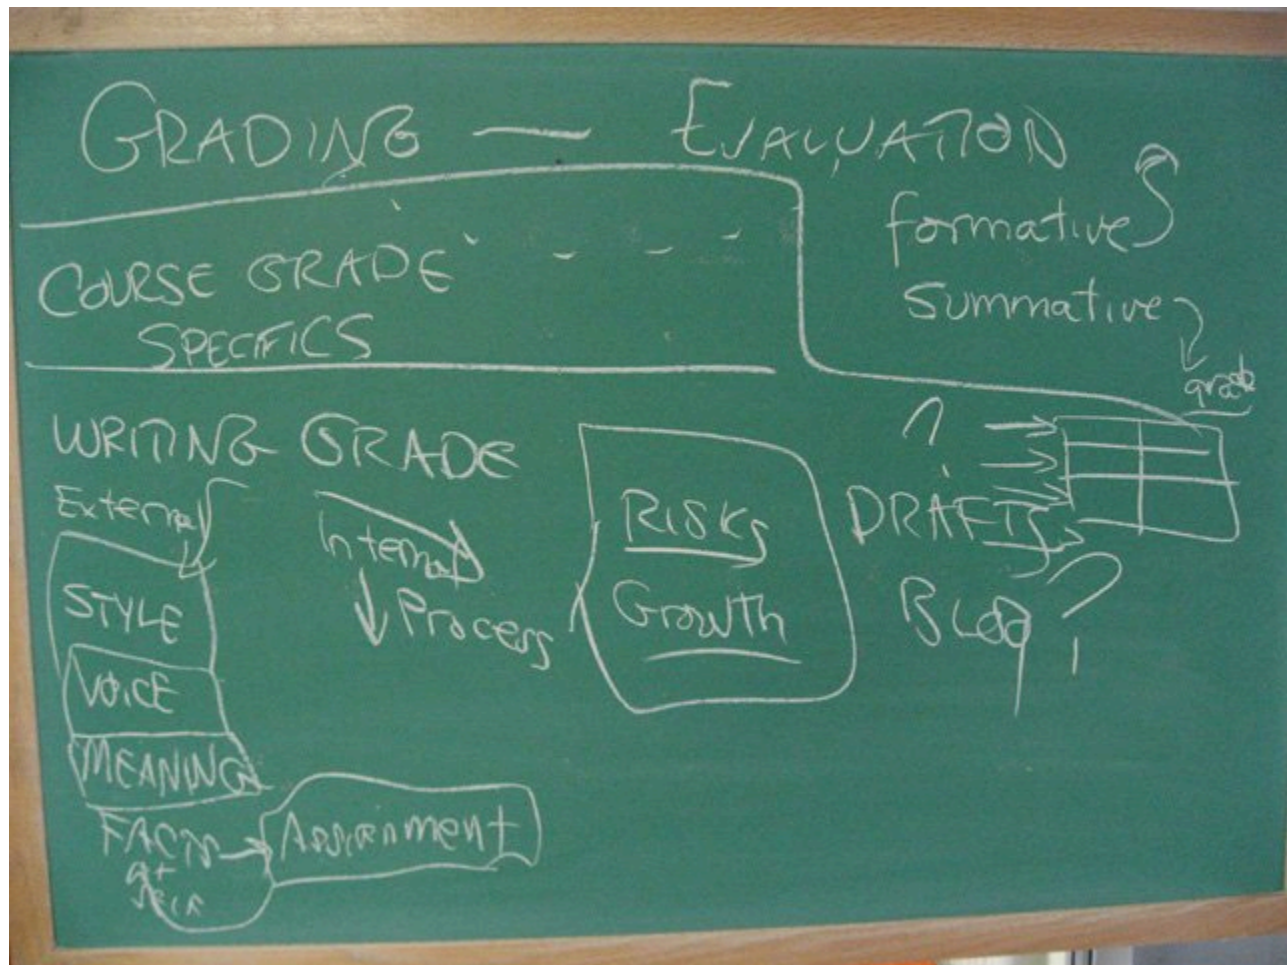 GRADING — EVALUATION
formative
summative
grade
COURSE GRADE
SPECIFICS
WRITING GRADE
External
STYLE
VOICE
MEANING
FACTS
Assignment
Internal
Process
Risks
Growth
?
DRAFTS
BLOG ?